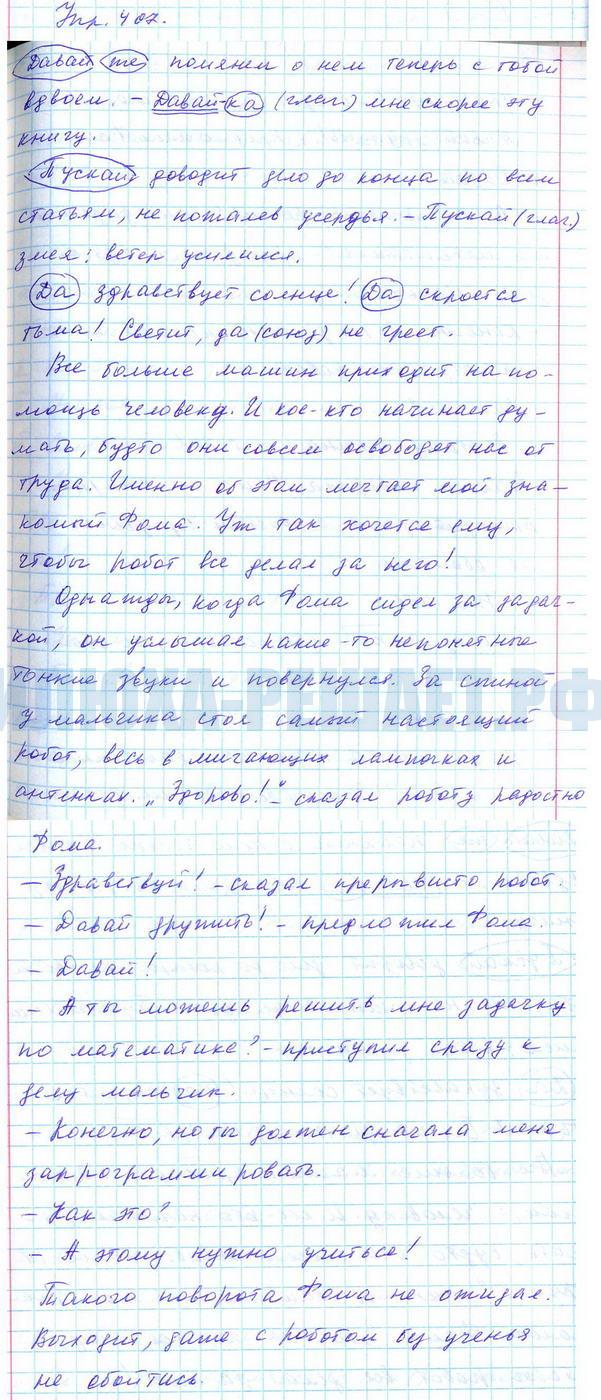 Упр. 407.
Давай же помянем о нем теперь с тобой
вдвоем. – Давай-ка (глаг.) мне скорее эту
книгу.
Пускай доводит дело до конца по всем
статьям, не пожалев усердья. – Пускай (глаг.)
змея: ветер усилился.
Да здравствует солнце! Да скроется
тьма! Светит, да (союз) не греет.
Все больше машин приходит на по-
мощь человеку. И кое-кто начинает ду-
мать, будто они совсем освободят нас от
труда. Именно об этом мечтает мой зна-
комый Фома. Уж так хочется ему,
чтобы робот все делал за него!
Однажды, когда Фома сидел за задач-
кой, он услышал какие-то непонятные
тонкие звуки и повернулся. За спиной
у мальчика стоял самый настоящий
робот, весь в мигающих лампочках и
антеннах. „Здорово!" – сказал роботу радостно
Фома.
– Здравствуй! – сказал прерывисто робот.
– Давай дружить! – предложил Фома.
– Давай!
– А ты можешь решить мне задачку
по математике? – приступил сразу к
делу мальчик.
– Конечно, но ты должен сначала меня
запрограммировать.
– Как это?
– А этому нужно учиться!
Такого поворота Фома не ожидал.
Выходит, даже с роботом без ученья
не обойтись.